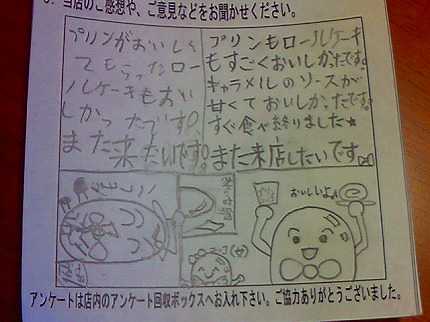 当店のご感想や、ご意見などをお聞かせください。
プリンがおいしく
てもらったロー
ルケーキもおい
しかったです!
また来たいです。
プリンもロールケーキ
もすごくおいしかったです。
キャラメルのソースが
甘くておいしかったです。
すぐ食べ終りました☆
また来店したいです
おいしいよ♪
アンケートは店内のアンケート回収ボックスへお入れ下さい。ご協力ありがとうございました。